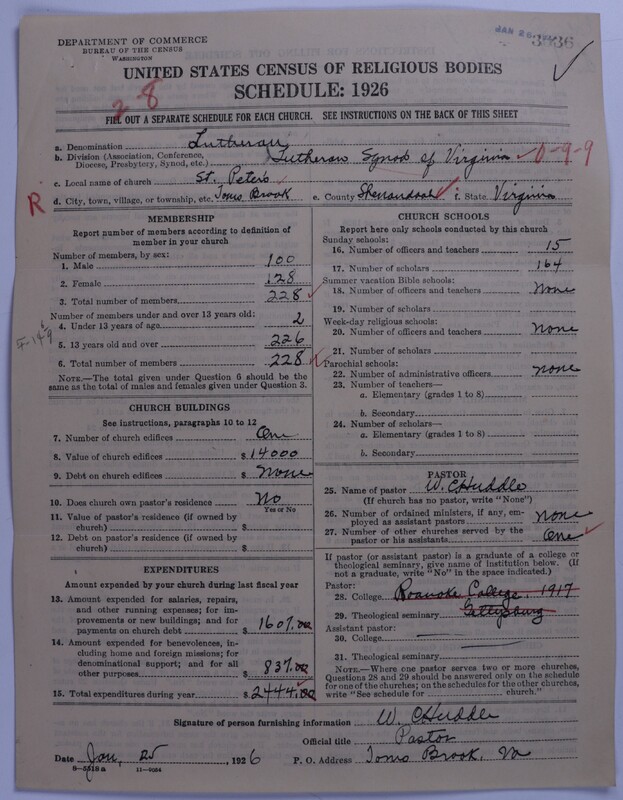 DEPARTMENT OF COMMERCE
BUREAU OF THE CENSUS
WASHINGTON
JAN 26
3836
UNITED STATES CENSUS OF RELIGIOUS BODIES
SCHEDULE: 1926
2-8
FILL OUT A SEPARATE SCHEDULE FOR EACH CHURCH. SEE INSTRUCTIONS ON THE BACK OF THIS SHEET
a. Denomination Lutheran
b. Division (Association, Conference, Diocese, Presbytery, Synod, etc.) Lutheran Synod of Virginia 0-9-9
c. Local name of church St. Peters
R d. City, town, village, or township, etc. Toms Brook e. County Shenandoah f. State Virginia
MEMBERSHIP
Report number of members according to definition of
member in your church
Number of members, by sex:
1. Male 100
2. Female 128
3. Total number of members 228
Number of members under and over 13 years old:
4. Under 13 years of age 2
5. 13 years old and over 226
6. Total number of members 228
NOTE.—The total given under Question 6 should be the
same as the total of males and females given under Question 3.
CHURCH BUILDINGS
See instructions, paragraphs 10 to 12
7. Number of church edifices One
8. Value of church edifices $14000
9. Debt on church edifices $None
10. Does church own pastor's residence No
Yes or No
11. Value of pastor's residence (if owned by
church) $
12. Debt on pastor's residence (if owned by
church) $
EXPENDITURES
Amount expended by your church during last fiscal year
13. Amount expended for salaries, repairs,
and other running expenses; for im-
provements or new buildings; and for
payments on church debt $1607.00
14. Amount expended for benevolences, in-
cluding home and foreign missions; for
denominational support; and for all
other purposes $837.00
15. Total expenditures during year $2444.00
CHURCH SCHOOLS
Report here only schools conducted by this church
Sunday schools:
16. Number of officers and teachers 15
17. Number of scholars 164
Summer vacation Bible schools:
18. Number of officers and teachers None
19. Number of scholars
Week-day religious schools:
20. Number of officers and teachers None
21. Number of scholars
Parochial schools:
22. Number of administrative officers None
23. Number of teachers—
a. Elementary (grades 1 to 8)
b. Secondary
24. Number of scholars—
a. Elementary (grades 1 to 8)
b. Secondary
PASTOR
25. Name of pastor W. C Huddle
(If church has no pastor, write "None")
26. Number of ordained ministers, if any, em-
ployed as assistant pastors None
27. Number of other churches served by the
pastor or his assistants One
If pastor (or assistant pastor) is a graduate of a college or
theological seminary, give name of institution below. (If
not a graduate, write "No" in the space indicated.)
Pastor:
28. College Roanoke College, 1917
29. Theological seminary Gettysburg
Assistant pastor:
30. College
31. Theological seminary
NOTE.—Where one pastor serves two or more churches,
Questions 28 and 29 should be answered only on the schedule
for one of the churches; on the schedules for the other churches,
write "See schedule for church."
Signature of person furnishing information W. C Huddle
Official title Pastor
Date Jan, 25, 1926 P. O. Address Toms Brook, Va
8—5518 a 11—9034